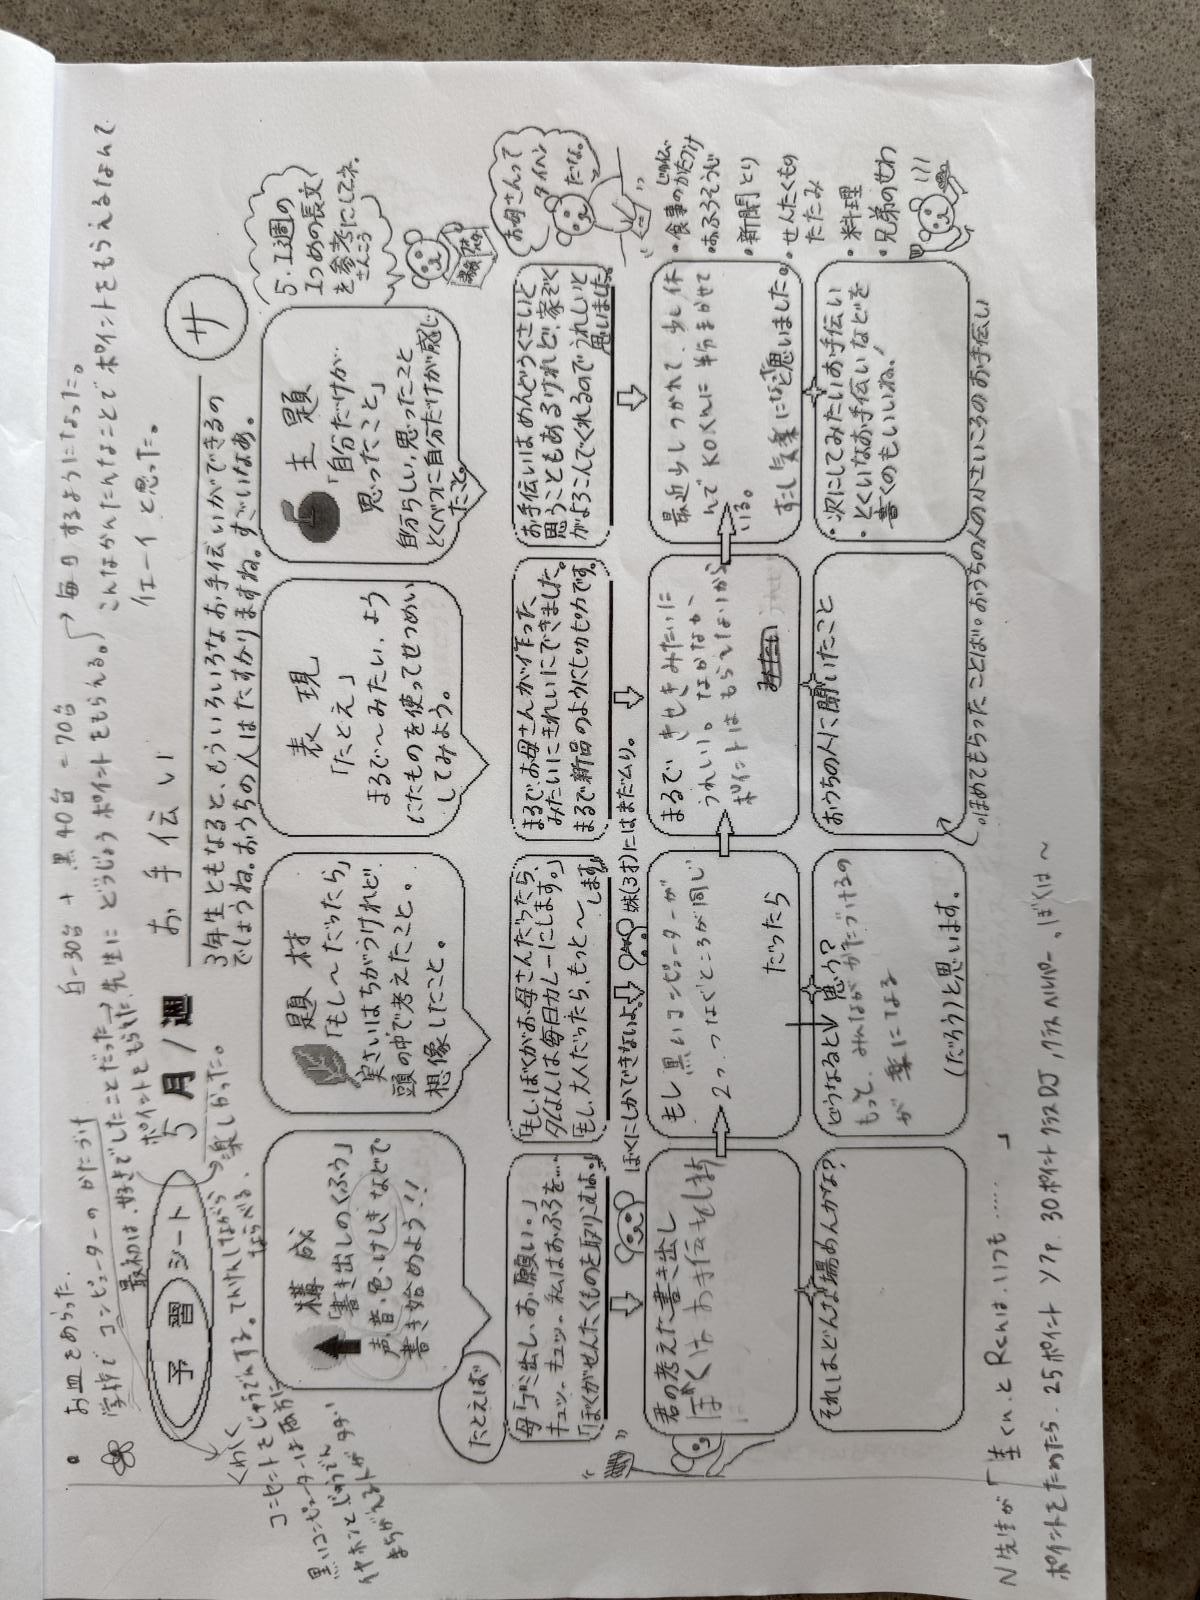 お皿をあらった.
学校で コンピューターの かたづけ
最初は、好きでしたことだった
→ 先生に どうじょうポイントをもらえる。
白-30台 + 黒40台 = 70台
毎日するようになった。
ポイントをもらえた
こんなかんたんなことでポイントをもらえるなんて
イェーイと思った。
楽しかった。
予習シート
5月1週
お手伝い
サ
3年生ともなると、もういろいろなお手伝いができるの
でしょうね。おうちの人はたすかりますね。すごいなあ。
5.1週の
1つめの長文
を参考にしてネ。
さんこう
くわしく
コンセントをじゅうでんする。てんけんしながら
ならべる、
黒いコンピューターは両方に
イヤホンとじゅうでん
まちがえるトが
構成
「書き出しのくふう」
声、音、色、けしきなどで
書き始めよう!!
題材
「もし〜だったら」
実さいはちがうけれど、
頭の中で考えたこと。
想像したこと。
表現
「たとえ」
まるで〜みたい、よう
にたものを使ってせつめい
してみよう。
主題
「自分だけが
思ったこと」
自分らしい、思ったこと
とくべつに自分だけが感じ
たこと。
たとえば
母「ゴミ出し、お願い。」
キュッ、キュッ、私はおふろを…
「ぼくがせんたくものを取りこむよ。」
「もし、ぼくがお母さんだったら、
夕ごはんは毎日カレーにします。」
「もし、大人だったら、もっと〜します」
まるで、お母さんが作った、
みたいにきれいにできました。
まるで新品のようにピカピカです。
お手伝いはめんどうくさいと
思うこともあるけれど、家ぞく
がよろこんでくれるのでうれしいと
思いました。
お母さんって
タイヘン
だな。
ぼくにしかできないよ。
妹(3才)にはまだムリ。
君の考えた書き出し
ぼくは お手伝をします
もし 黒いコンピューターが
2つ、つなぐところが同じ
だったら
まるで きせきみたいに
うれしい。 なかなか、
ポイントは もらえないから
みたい
最近少しつかれて、少し休
んで KOくんに 半分まかせて
いる。
すこし 気楽になると思いました。
・食事のかたづけ
じゅんび
・おふろそうじ
・新聞とり
・せんたくもの
たたみ
・料理
・兄弟のせわ
それはどんな場めんかな?
どうなると思う?
もっと、みんなが かたづけるの
が 楽になる
(だろう)と思います。
おうちの人に聞いたこと
・次にしてみたいお手伝い
・とくいなお手伝いなどを
書くのもいいね。
○ほめてもらったことば ○おうちの人の小さいころのお手伝い
N先生が「生くん、と Rくんは、いつも……」
ポイントをためたら、25ポイント 30ポイント クラスDJ、クラスヘルパー、ぼくは〜